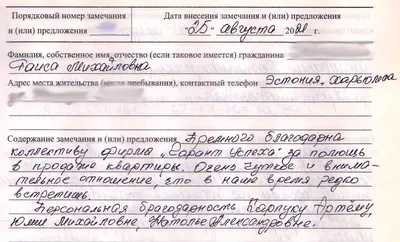 Порядковый номер замечания
и (или) предложения
Дата внесения замечания и (или) предложения
"25" августа 2021 г.
Фамилия, собственное имя, отчество (если таковое имеется) гражданина
Таиса Михайловна
Адрес места жительства (места пребывания), контактный телефон Эстония, Харьюмаа
Содержание замечания и (или) предложения Премного благодарна
коллективу фирмы „Гарант Успеха" за помощь
в продаже квартиры. Очень чуткое и внима-
тельное отношение, что в наше время редко
встретишь.
Персональная благодарность Карпуку Артёму,
Юлии Михайловне, Наталье Александровне.